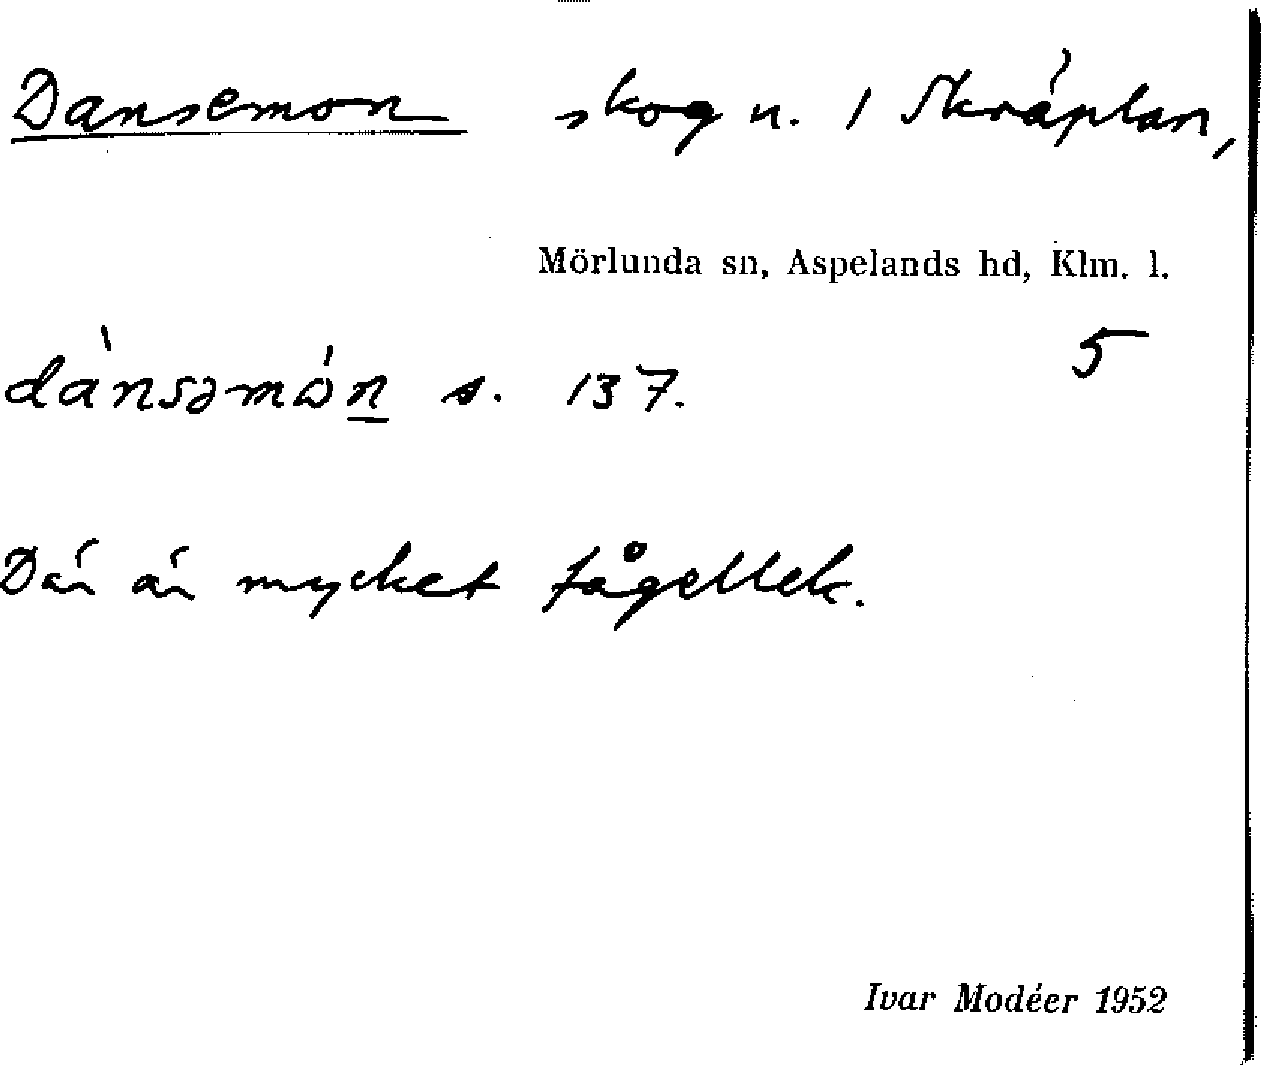 Dansemon skog n. / Skräplan,
Mörlunda sn, Aspelands hd, Klm. l.
5
dànsəmòn s. 137.
Där är mycket fågellek.
Ivar Modéer 1952